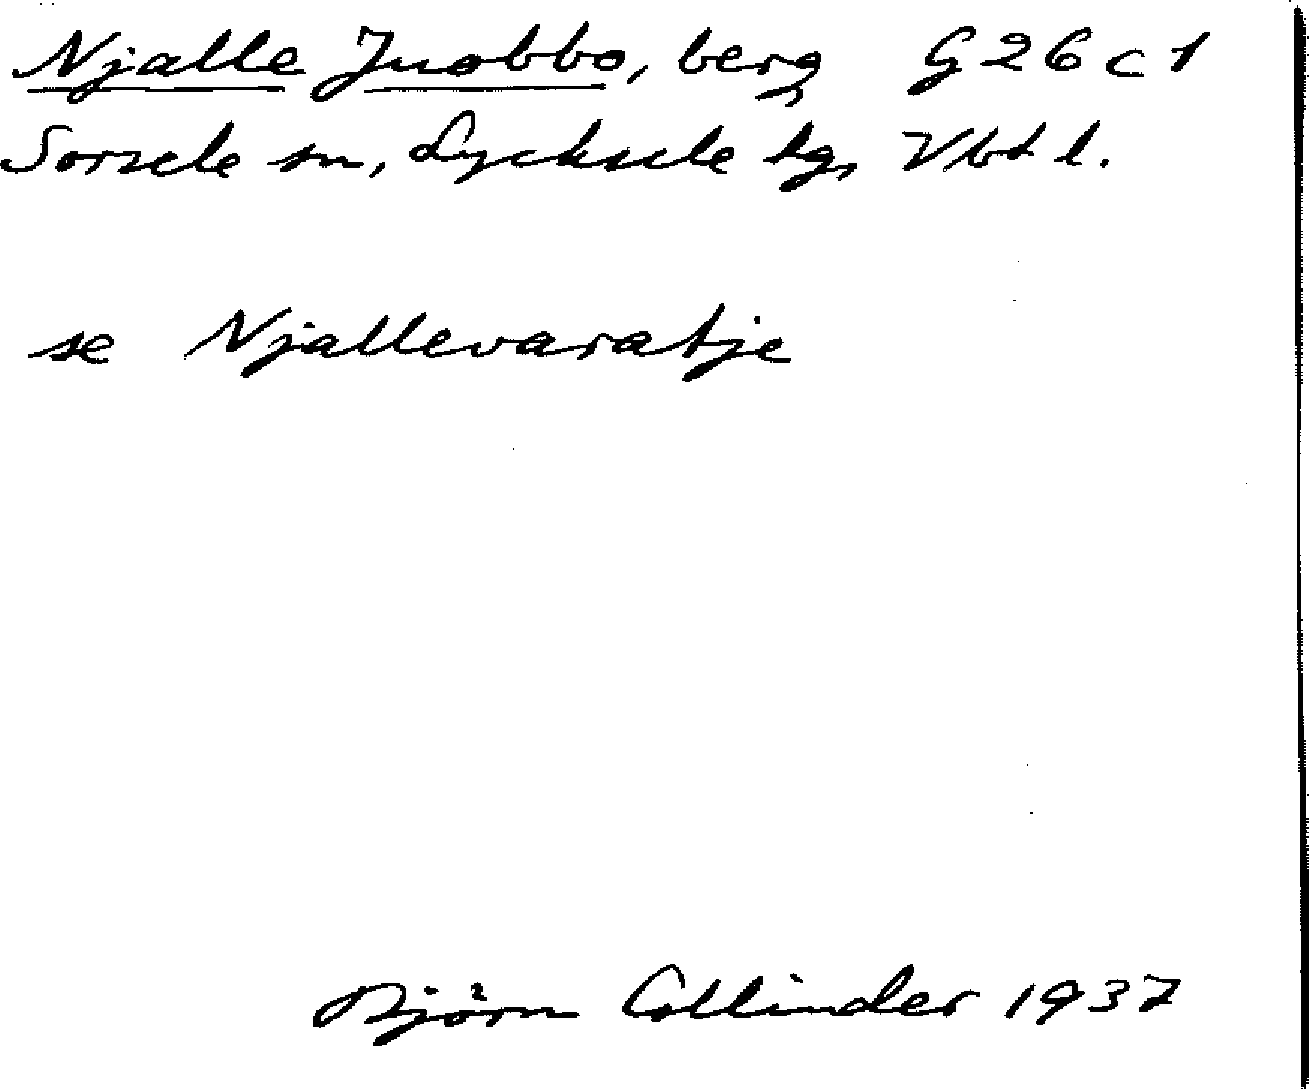 Njalle Juobbo, berg G 26 c 1
Sorsele sn, Lycksele tg, Vbt l.
se Njallevaratje
Björn Collinder 1937